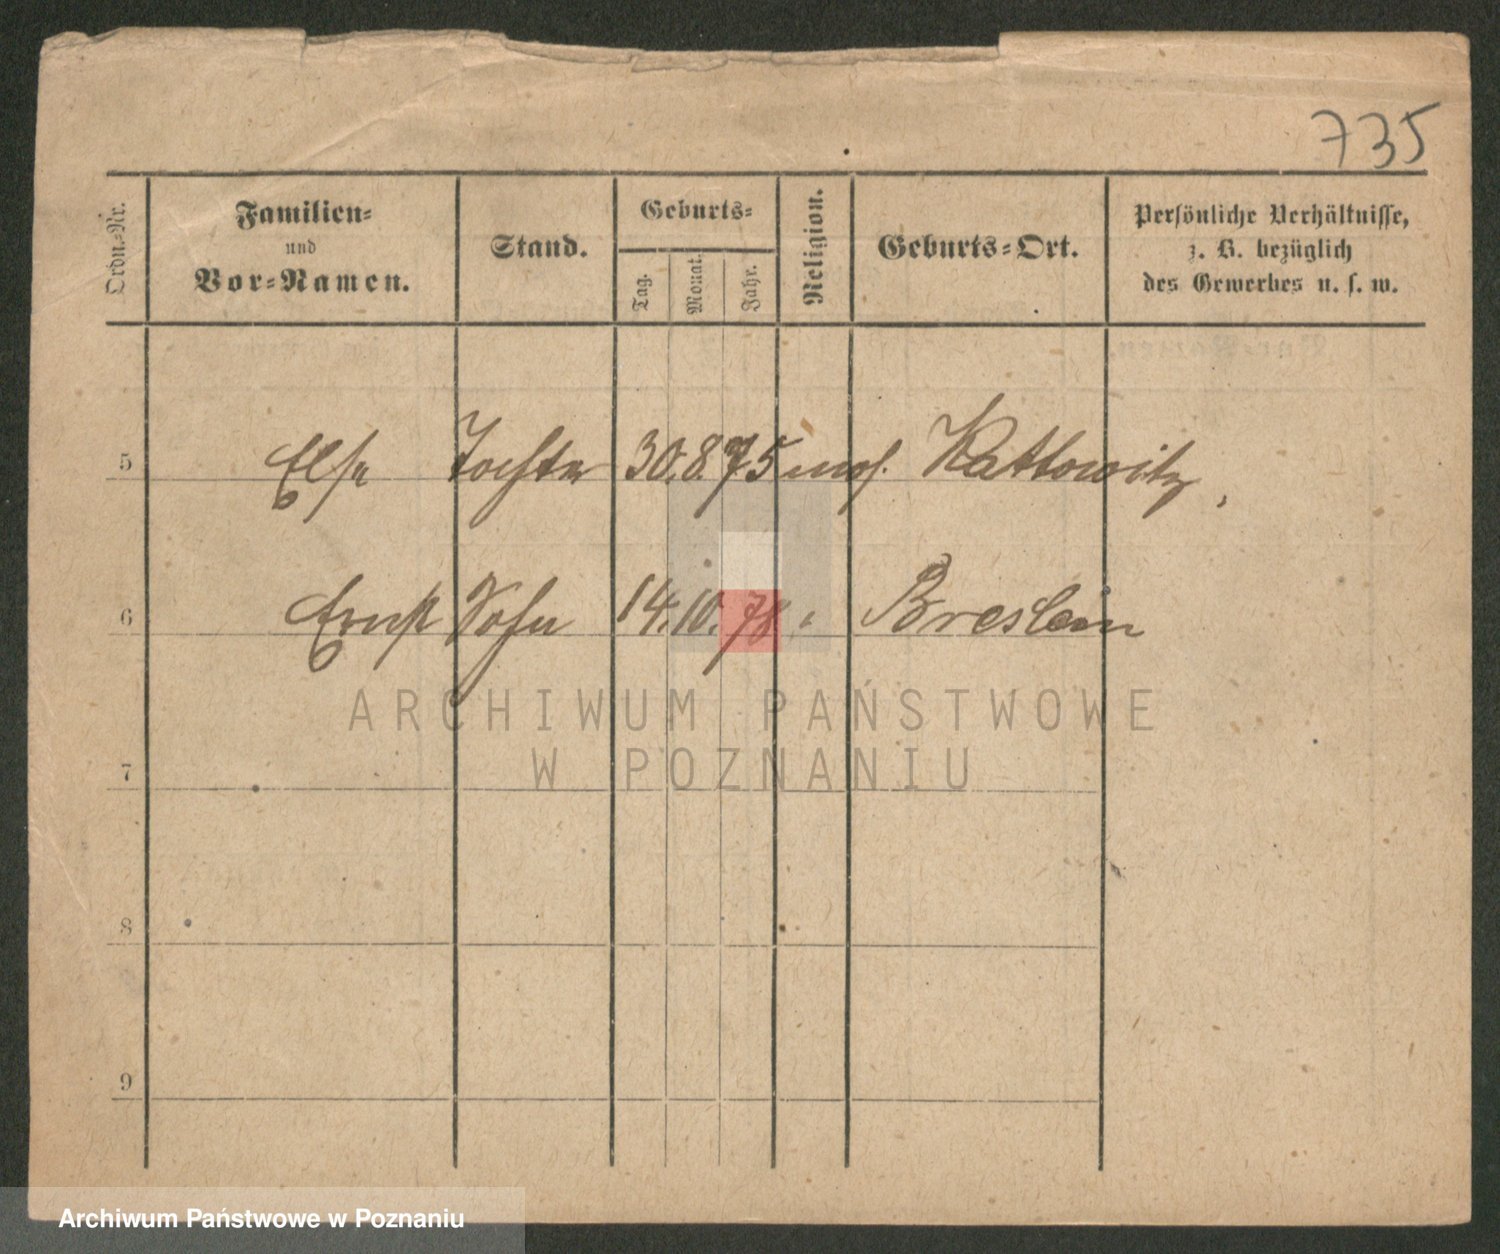 735
Ordn.-Nr.
Familien-
und
Vor-Namen.
Stand.
Geburts-
Tag.
Monat.
Jahr.
Religion.
Geburts-Ort.
Persönliche Verhältnisse,
z. B. bezüglich
des Gewerbes u. s. w.
5 Else Tochter 30. 8. 75 mos. Kattowitz,
6 Ernst Sohn 14. 10. 78 " Breslau
7
8
9
ARCHIWUM PAŃSTWOWE
W POZNANIU
Archiwum Państwowe w Poznaniu